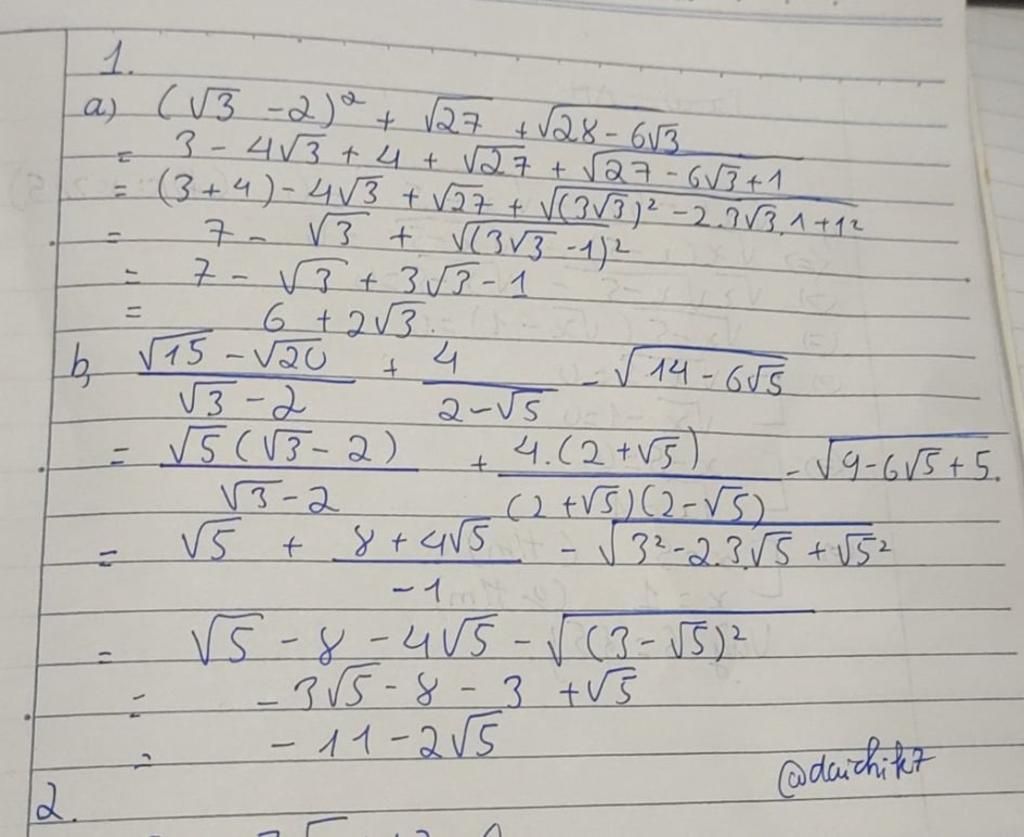 1.
a) (√3 - 2)² + √27 + √(28 - 6√3)
= 3 - 4√3 + 4 + √27 + √(27 - 6√3 + 1)
= (3 + 4) - 4√3 + √27 + √((3√3)² - 2.3√3.1 + 1²)
= 7 - √3 + √((3√3 - 1)²)
= 7 - √3 + 3√3 - 1
= 6 + 2√3.
b, (√15 - √20)/(√3 - 2) + 4/(2 - √5) - √(14 - 6√5)
= (√5(√3 - 2))/(√3 - 2) + (4.(2 + √5))/((2 + √5)(2 - √5)) - √(9 - 6√5 + 5).
= √5 + (8 + 4√5)/(-1) - √(3² - 2.3.√5 + √5²)
= √5 - 8 - 4√5 - √((3 - √5)²)
= - 3√5 - 8 - 3 + √5
= - 11 - 2√5
@daichik7
2.